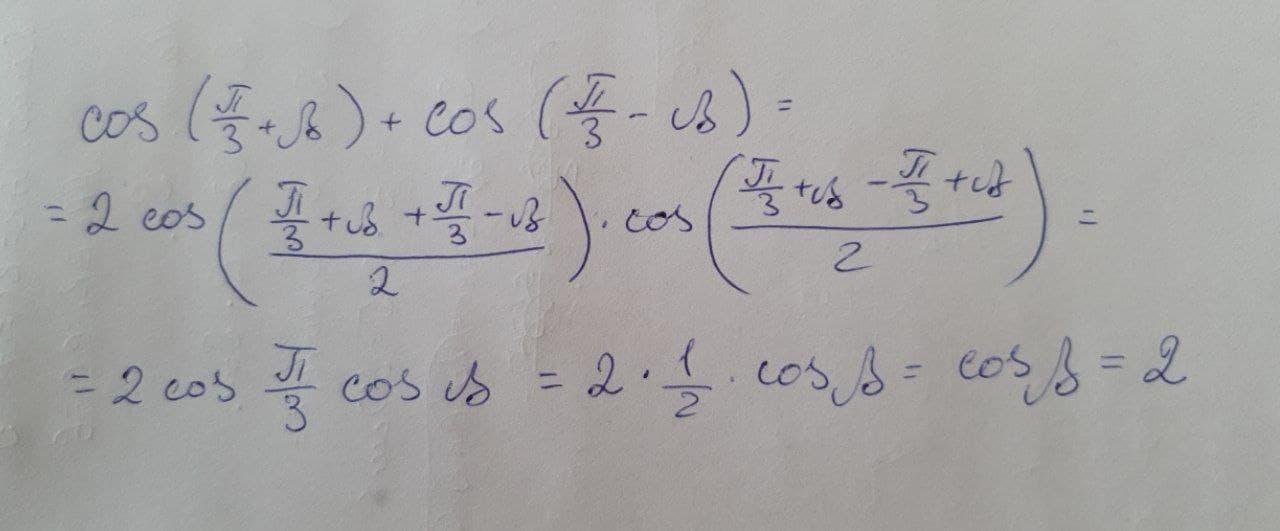 cos (π/3 + β) + cos (π/3 - β) =
= 2 cos ((π/3 + β + π/3 - β)/2) · cos ((π/3 + β - π/3 + β)/2) =
= 2 cos π/3 cos β = 2 · 1/2 · cos β = cos β = 2